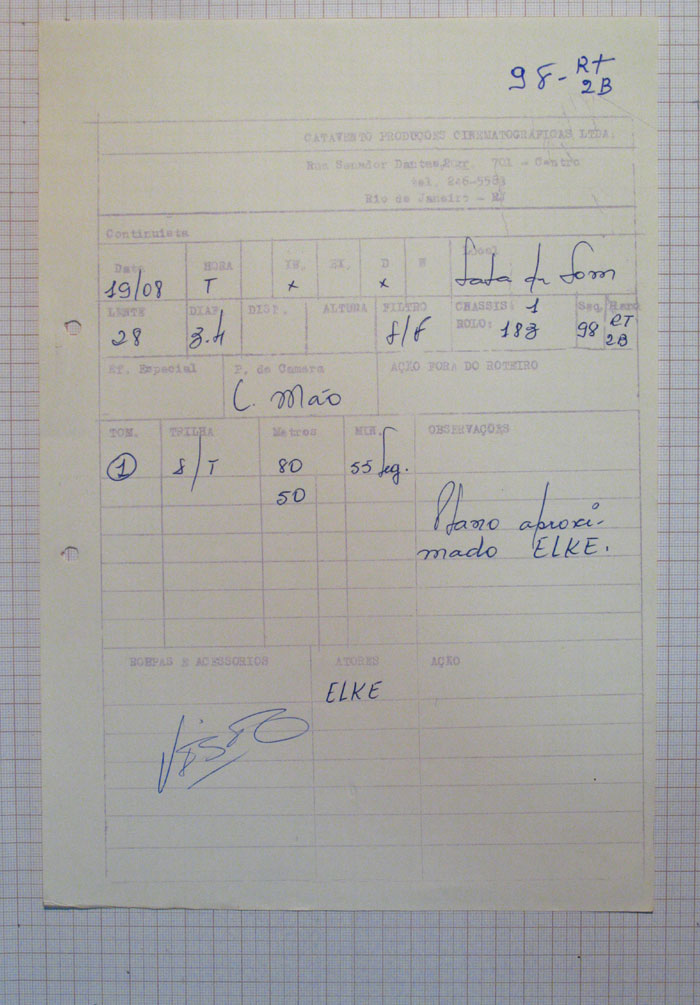 98 - RT
2B
CATAVENTO PRODUÇÕES CINEMATOGRÁFICAS LTDA.
Rua Senador Dantas, 701 - Centro
tel. 246-5583
Rio de Janeiro - RJ
Continuista
Data HORA IN. EX. D N Local
19/08 T x x Sala de Som
LENTE DIAF. DISP. ALTURA FILTRO CHASSIS: 1 Seq.
28 3.4 S/F ROLO: 183 98 RT
2B
Ef. Especial P. de Camera AÇÃO FORA DO ROTEIRO
C. Mão
TOM. TRILHA Metros MIN. OBSERVAÇÕES
1 S/T 80 55 Seg.
50
Plano aproxi-
mado ELKE.
ROUPAS E ACESSORIOS ATORES AÇÃO
ELKE